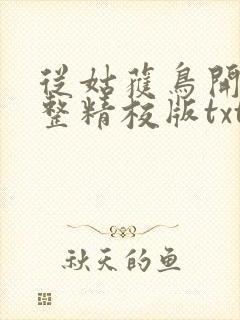 從姑獲鳥開
整精校版txt
秋天的鱼